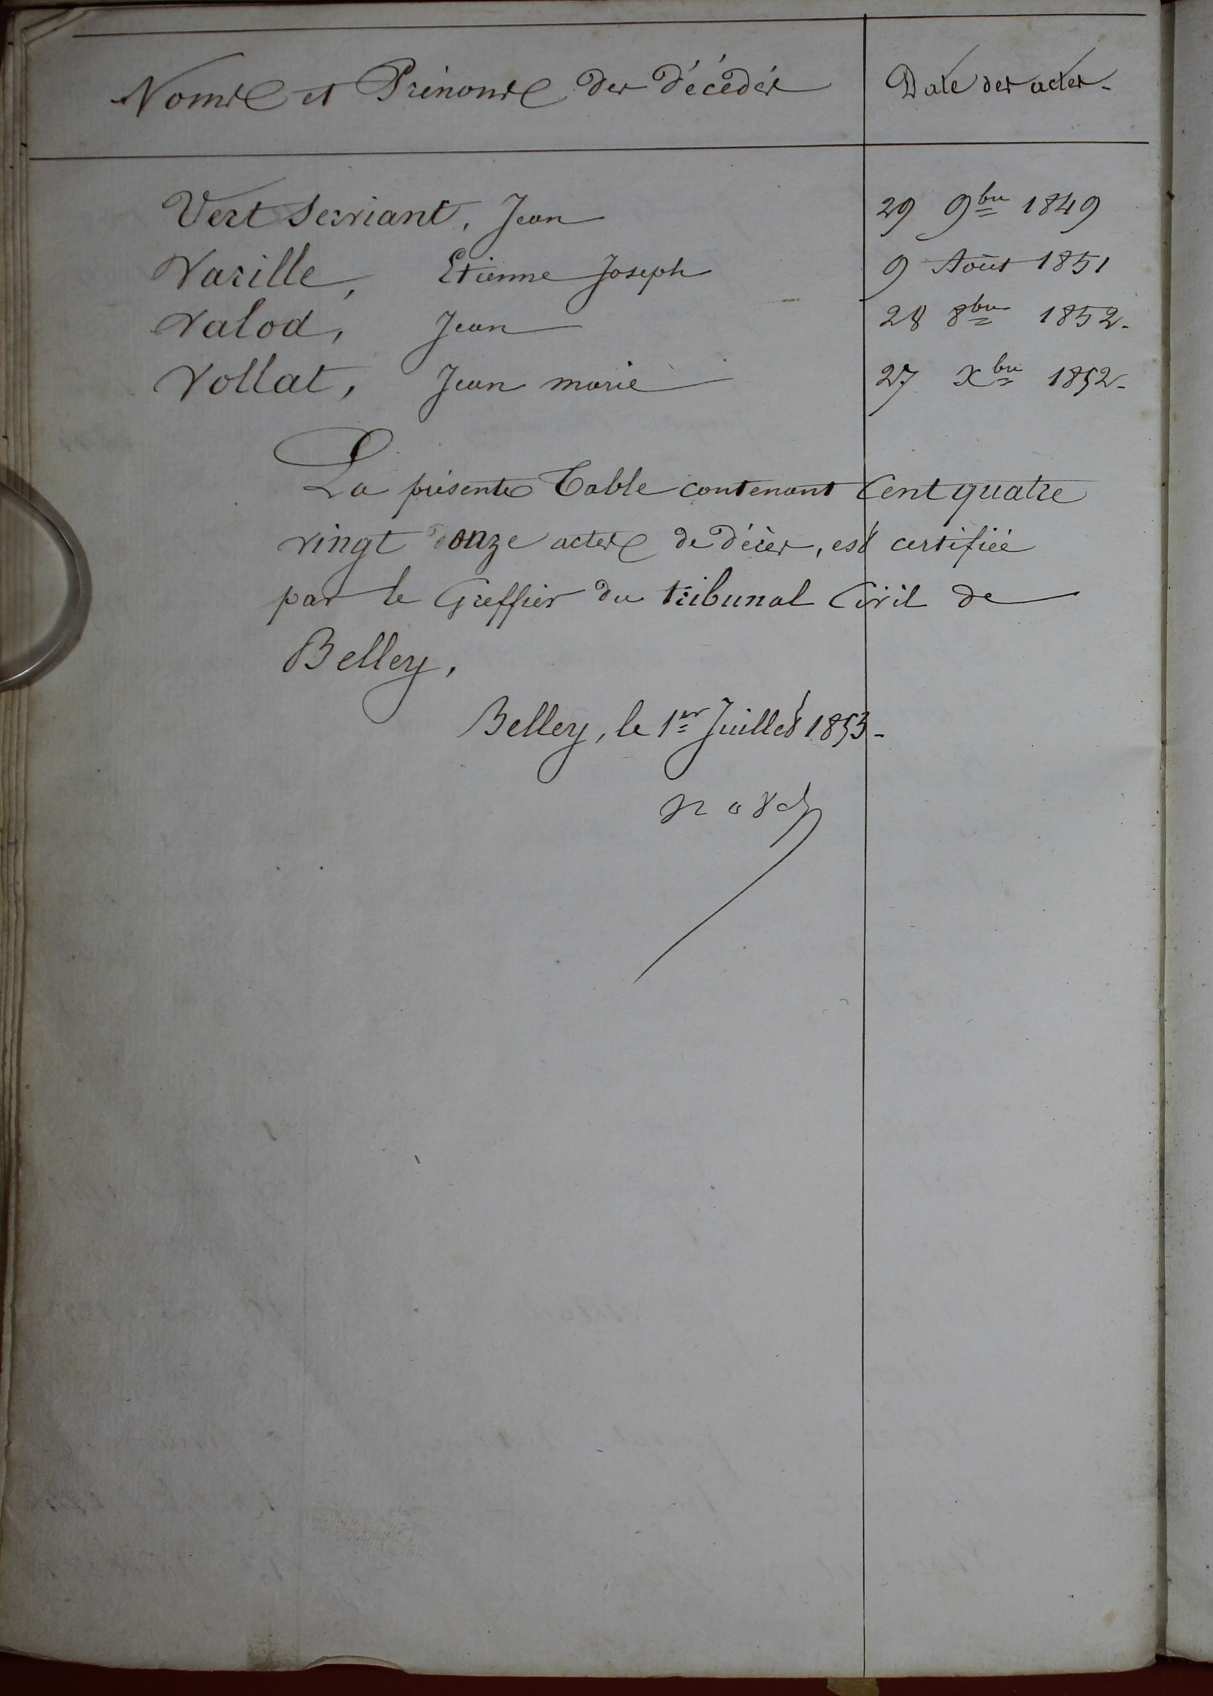 Noms et Prénoms des décédés Date des actes.
Vert Servant, Jean 29 9bre 1849
Varille, Etienne Joseph 9 Août 1851
Valod, Jean 28 8bre 1852.
Vollat, Jean marie 27 Xbre 1852.
La présente Table contenant Cent quatre
vingt onze actes de décès, est certifiée
par le Greffier du tribunal Civil de
Belley.
Belley, le 1er Juillet 1853.